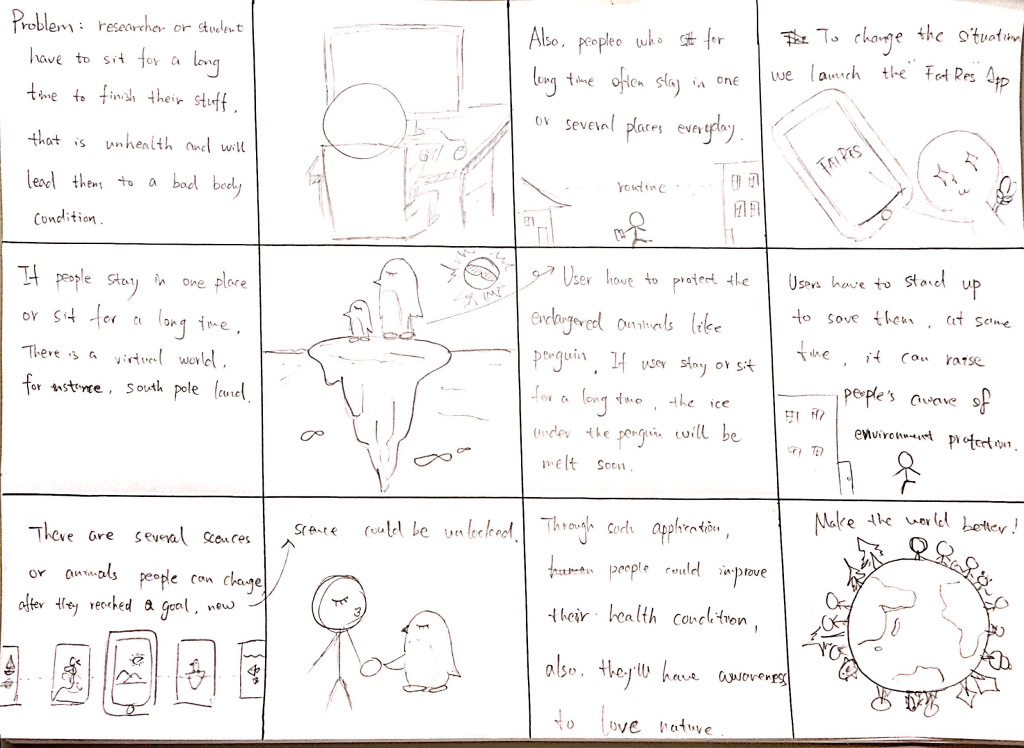 Problem: researcher or student
have to sit for a long
time to finish their stuff.
that is unhealth and will
lead them to a bad body
condition.
Also, peopleo who sit for
long time often stay in one
or several places everyday.
routine
To change the situation
we launch the "FatRes" App
FATRES
If people stay in one place
or sit for a long time,
There is a virtual world,
for instance, south pole land.
User have to protect the
endangered animals like
penguin. If user stay or sit
for a long time, the ice
under the penguin will be
melt soon.
Users have to stand up
to save them, at same
time, it can raise
people's aware of
environment protection.
There are several scences
or animals people can change
after they reached a goal, new
scence could be unlocked.
Through such application,
human people could improve
their health condition,
also, they'll have awareness
to love nature.
Make the world better!